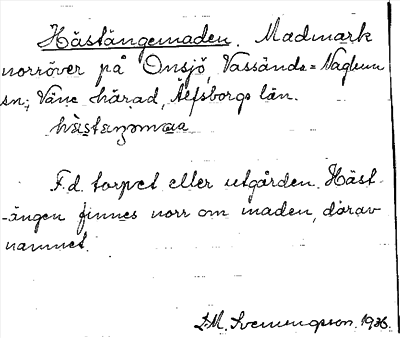 Hästängemaden. Madmark
norröver på Onsjö, Vassända=Naglum
sn; Väne härad, Älfsborgs län.
hästaŋəmaa
F.d. torpet eller utgården Häst-
-ängen finnes norr om maden, därav
namnet.
D.M. Svenungsson. 1936.